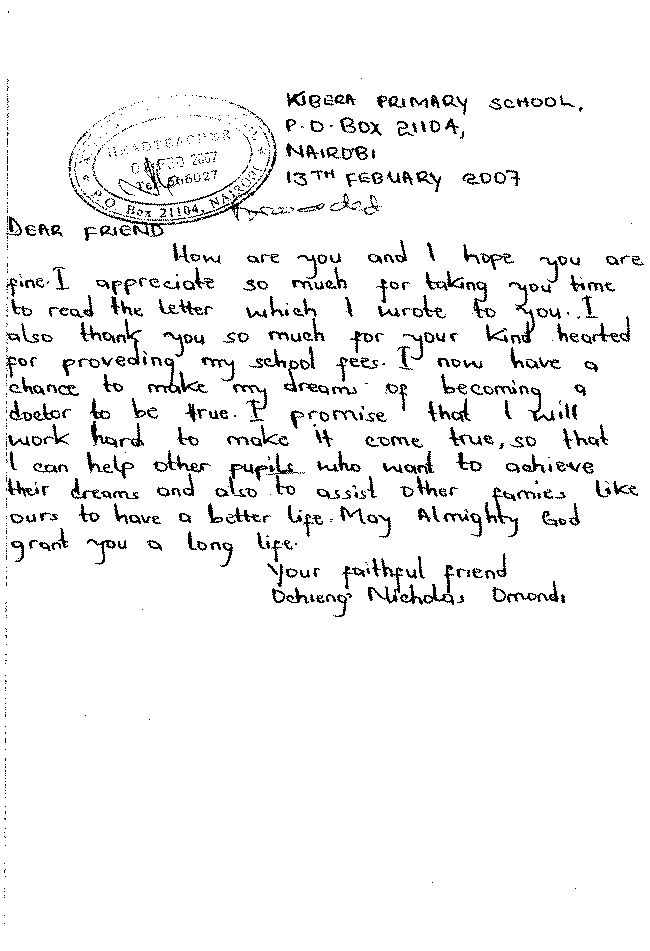 KIBERA PRIMARY SCHOOL,
P.O. BOX 21104,
NAIROBI
13TH FEBUARY 2007
HEADTEACHER
FEB 2007
Tel. 566027
P.O. Box 21104, NAIROBI
DEAR FRIEND
How are you and I hope you are
fine. I appreciate so much for taking you time
to read the letter which I wrote to you. I
also thank you so much for your kind hearted
for proveding my school fees. I now have a
chance to make my dreams of becoming a
doctor to be true. I promise that I will
work hard to make it come true, so that
I can help other pupils who want to achieve
their dreams and also to assist other famies like
ours to have a better life. May Almighty God
grant you a long life.
Your faithful friend
Ochieng' Nicholas Omondi